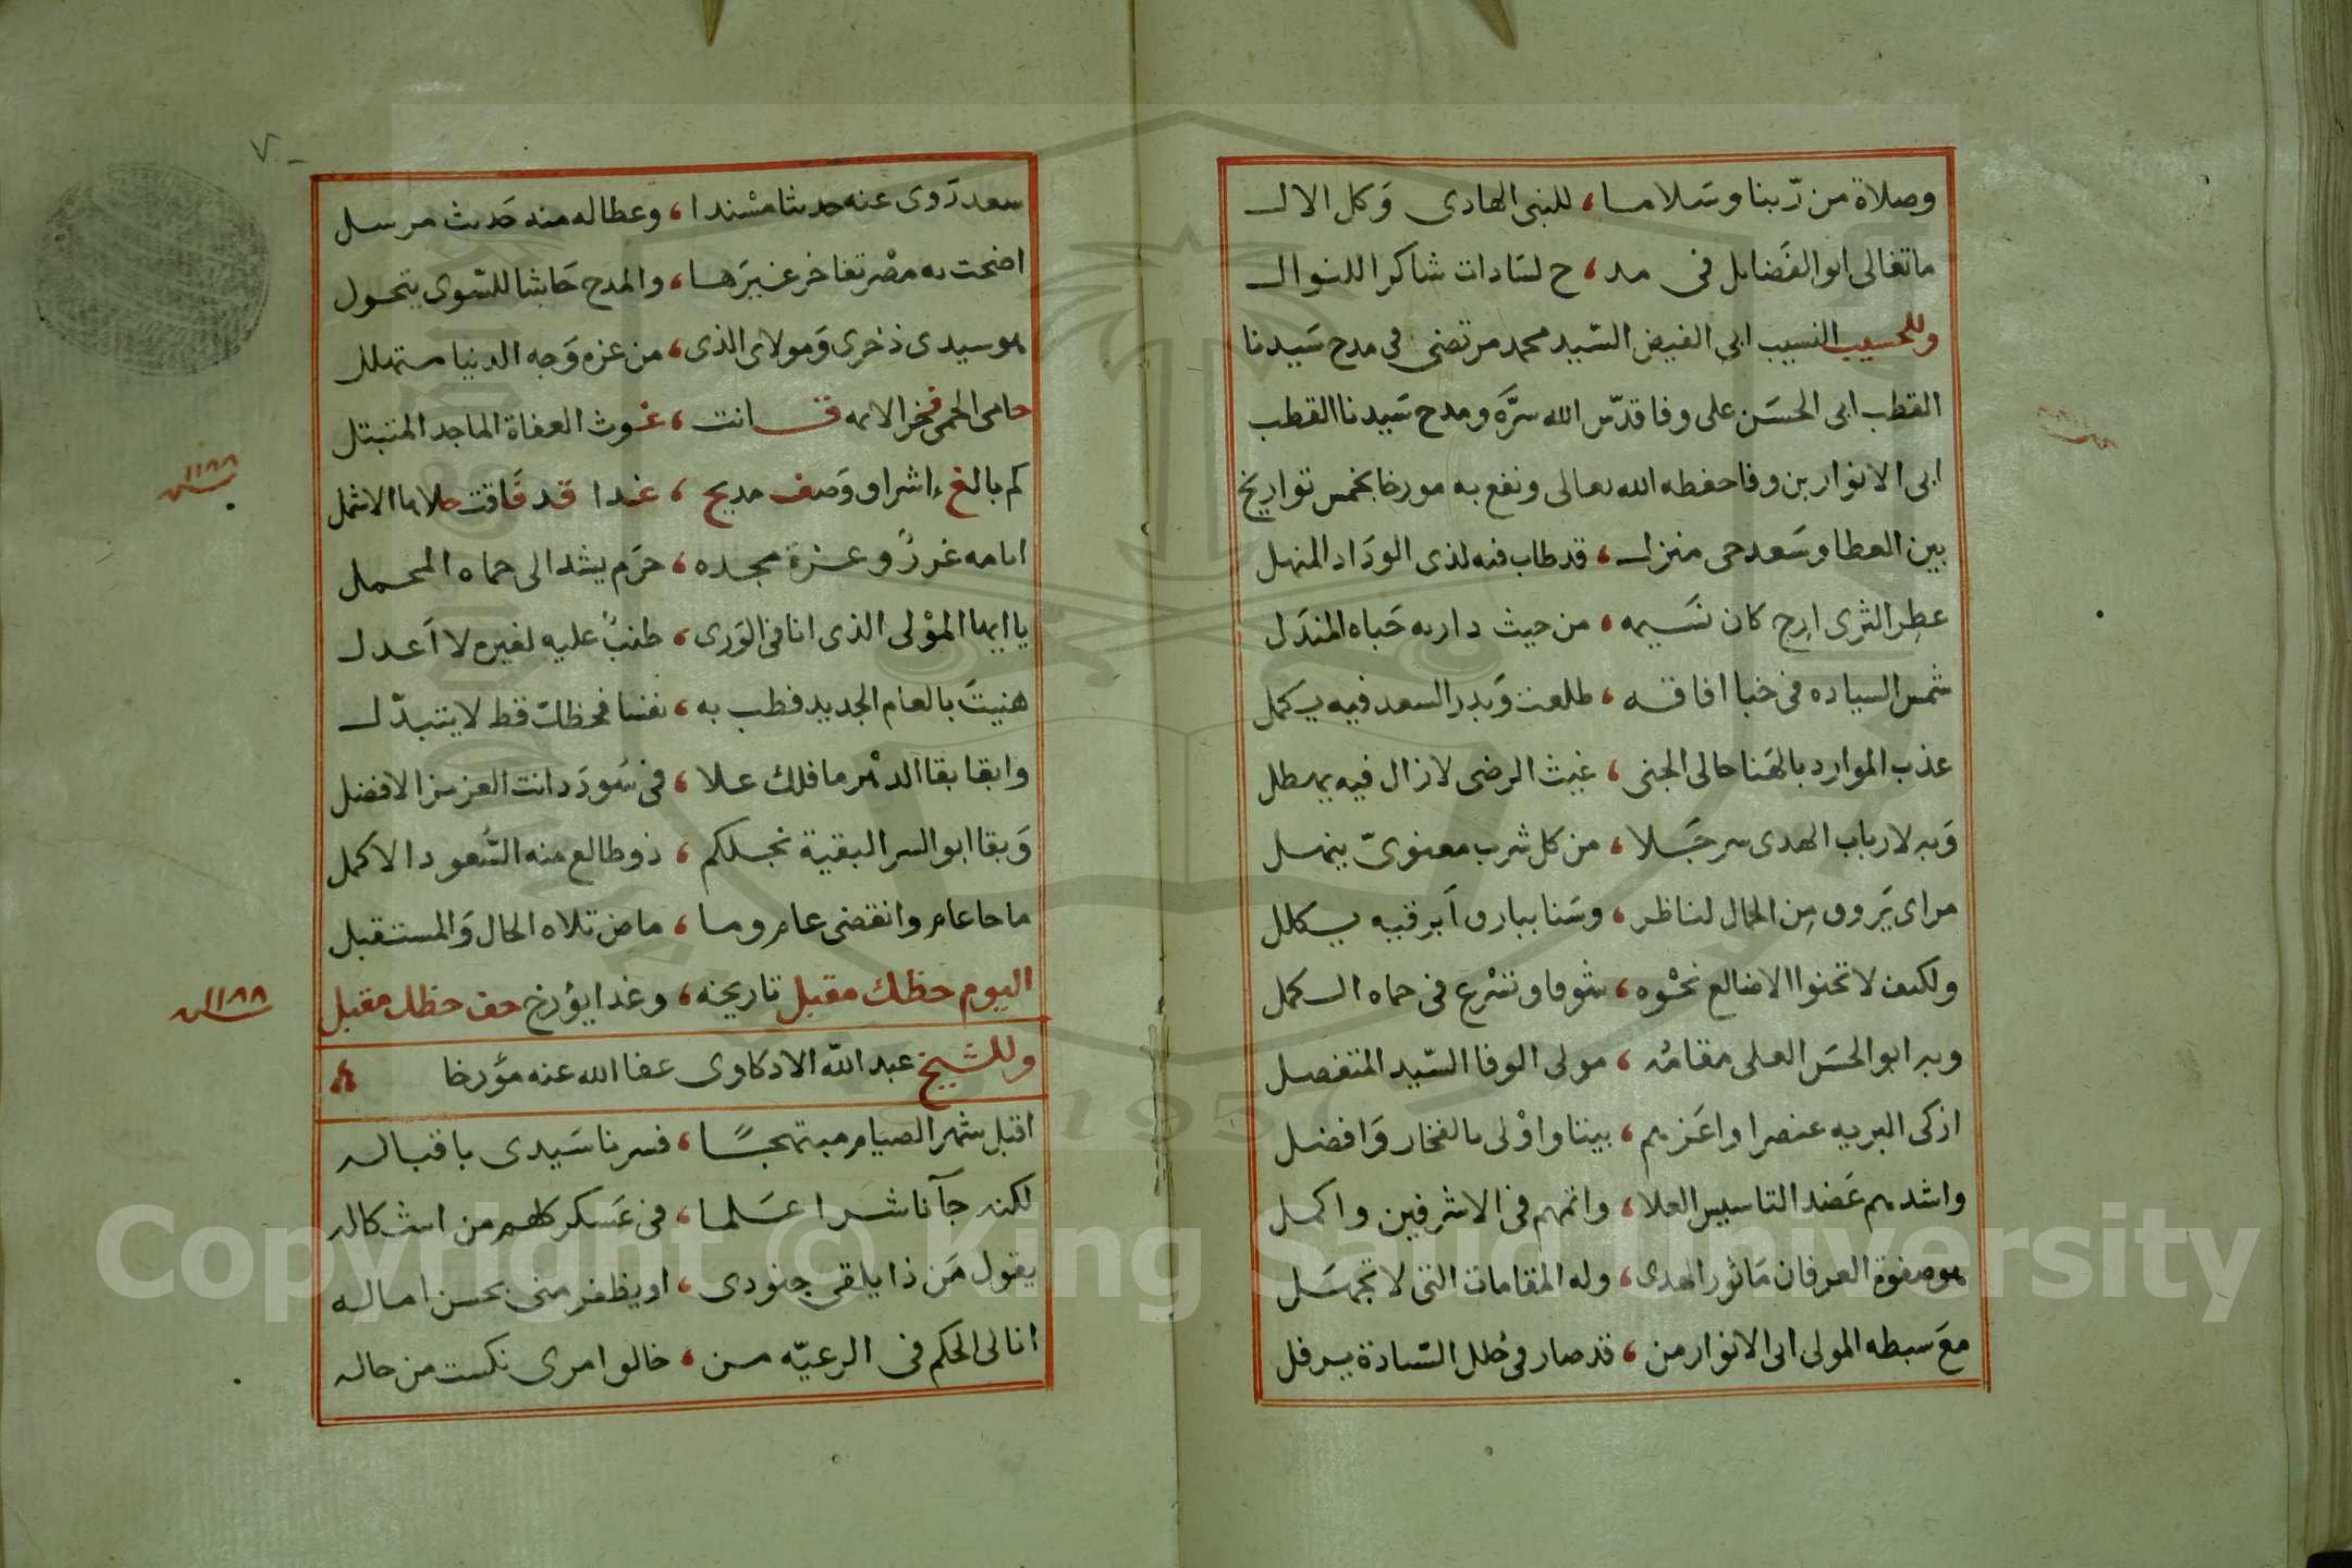 وصلاة من ربنا وسلاما، للنبى الهادى وكل الال
ماتغالى ابوالفضايل فى مد، ح لسادات شاكرا للنوال
وللحسيب النسيب ابى الفيض السيد محمد مرتضى فى مدح سيدنا
القطب ابى الحسن على وفا قدس الله سره ومدح سيدنا القطب
ابى الانوار بن وفا حفظه الله تعالى ونفع به مورخا بخمس تواريخ
بين العطا وسعد حى منزل، قد طاب فيه لذى الوداد المنهل
عطر الثرى ارج كان نسيمه، من حيث دار به حباه المندل
شمس السياده فى خبا افاقه، طلعت وبدر السعد فيه يكمل
عذب الموارد بالهنا حالى الجنى، غيث الرضى لازال فيه يهطل
وبه لارباب الهدى سر جلا، من كل شرب معنوى ينهل
مراى يروق من الجمال لناظر، وسنا ببارق ابرقيه يكلل
ولكيف لا تحنوا الاضالع نحوه، شوقا وتشرع فى حماه الكمل
وبه ابوالحسن العلى مقامه، مولى الوفا السيد المتفضل
ازكى البريه عنصرا واعزهم، بيتا واولى بالفخار وافضل
واشدهم عضد التاسيس العلا، واتمهم فى الاشرفين واكمل
هو صفوة العرفان ماثور الهدى، وله المقامات التى لا تجهل
مع سبطه المولى ابى الانوار من، قد صار فى حلل السادة يرفل
٧
سعد روى عنه حديثا مسندا، وعطا له منه حديث مرسل
اضحت به مصر تفاخر غيرها، والمدح حاشا للسوى يتحول
هو سيدى ذخرى ومولاى الذى، من عزه وجه الدنيا متهلل
حامى الحمى فخر الايمه قانت، غوث العفاة الماجد المتبتل
كم بالغ اشرا ووصف مديح، غدا قد فاقت حلاها الاشمل
١١٨٨ سنه
ايامه غرر وعزة مجده، حرم يشد الى حماه المحمل
يا ايها المولى الذى انا فى الورى، طنب عليه لغيره لا اعدل
هنيت بالعام الجديد فطب به، نفسا فحظك قط لا يتبدل
وابقا بقا الدهر ما فلك علا، فى سودد انت العزيز الافضل
وبقا ابوالسر البقية نجلكم، ذو طالع منه السعود الاكمل
ماجا عام وانقضى عام وما، ماض تلاه الحال والمستقبل
اليوم حظك مقبل تاريخه، وغدا يؤرخ حق حظك مقبل
١١٨٨ سنه
وللشيخ عبد الله الادكاوى عفا الله عنه مؤرخا
اقبل شهر الصيام مبتهجا، فسرنا سيدى باقباله
لكنه جآنا شرا علما، فى عسكر كلهم من اشكاله
يقول من ذا يلقى جنودى، او يظفر منى بحسن اماله
انا لى الحكم فى الرعيه من، خالو امرى نكست من حاله
Copyright © King Saud University
1957